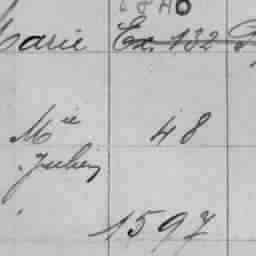 1840
Marie Ex. 132
Mie 48
Julien
1597